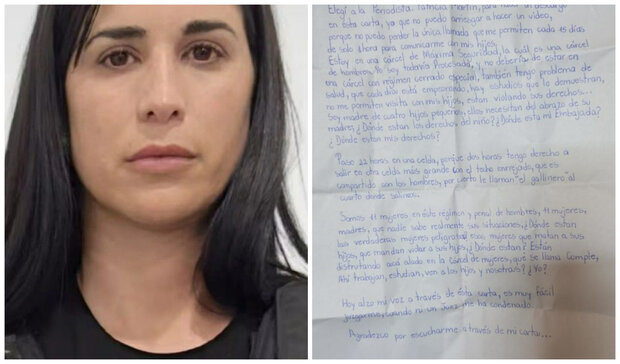 Elegí a la Periodista Patricia Martín, para hacer un descargo
en ésta carta, ya que no puedo arriesgar a hacer un video,
porque no puedo perder la única llamada que me permiten cada 15 días
de solo 1 hora para comunicarme con mis hijos.
Estoy en una cárcel de Máxima Seguridad, la cuál es una cárcel
de hombres. Yo soy todavía Procesada, y no debería de estar en
una cárcel con régimen cerrado especial, también tengo problema de
salud, que cada día está empeorando, hay estudios que lo demuestran,
no me permiten visita con mis hijos, están violando sus derechos...
Soy madre de cuatro hijos pequeños, ellos necesitan del abrazo de su
madre, ¿Dónde están los derechos del niño? ¿Dónde está mi Embajada?
¿Dónde están mis derechos?
Paso 22 horas en una celda, porque dos horas tengo derecho a
salir en otra celda más grande con el techo enrejado, que es
compartido con los hombres, por cierto le llaman "el gallinero" al
cuarto donde salimos.
Somos 11 mujeres en éste régimen y penal de hombres, 11 mujeres,
madres, que nadie sabe realmente sus situaciones, ¿Dónde están
las verdaderas mujeres peligrosas? esas mujeres que matan a sus
hijos, que mandan violar a sus hijos, ¿Dónde están? Están
disfrutando acá alado en la cárcel de mujeres, que se llama Comple,
Ahí trabajan, estudian, ven a los hijos y nosotras? ¿Yo?
Hoy alzo mi voz a través de ésta carta, es muy fácil
juzgarme, cuando ni un Juez me ha condenado.
Agradezco por escucharme a través de mi carta...